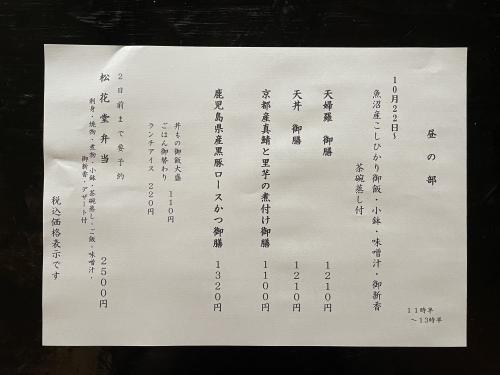 昼の部
11時半
～13時半
10月22日～
魚沼産こしひかり御飯・小鉢・味噌汁・御新香
茶碗蒸し付
天婦羅 御膳 1210円
天丼 御膳 1210円
京都産真鯖と里芋の煮付け御膳 1100円
鹿児島県産黒豚ロースかつ御膳 1320円
丼もの御飯大盛
ごはん御替わり 110円
ランチアイス 220円
2日前まで要予約
松花堂弁当 2500円
刺身・焼物・煮物・小鉢・茶碗蒸し・ご飯・味噌汁・
御新香・デザート付
税込価格表示です